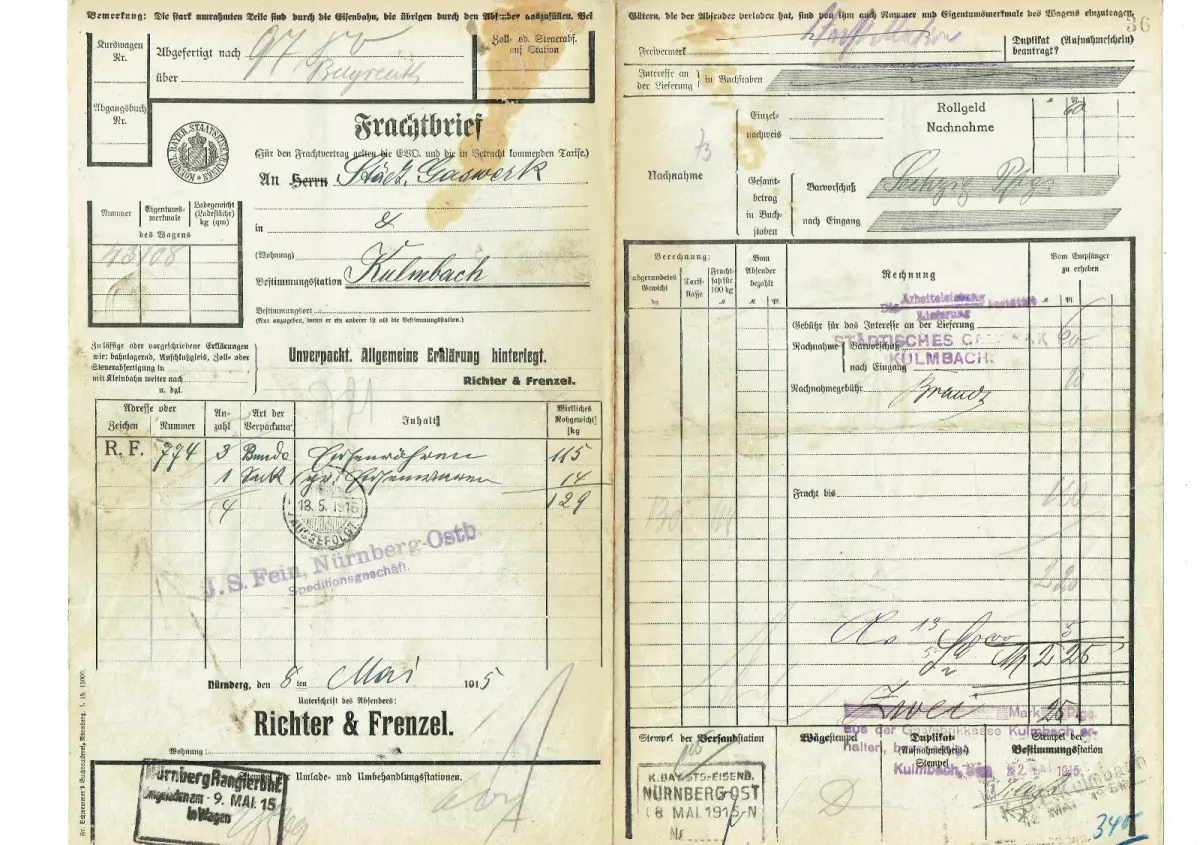 Bemerkung: Die stark umrahmten Teile sind durch die Eisenbahn, die übrigen durch den Absender auszufüllen. Bei
Kurswagen
Nr.
Abgefertigt nach
über Bayreuth
Zoll- od. Steuerabf.
auf Station
Abgangsbuch
Nr.
KÖNIGL. BAYER. STAATSEISENBAHNEN
Frachtbrief
(Für den Frachtvertrag gelten die EVO. und die in Betracht kommenden Tarife.)
An Herrn Städt. Gaswerk
Nummer
Eigentums-
merkmale
Ladegewicht
(Ladefläche)
kg (qm)
des Wagens
43108
in
(Wohnung)
Bestimmungsstation Kulmbach
Bestimmungsort
(Nur anzugeben, wenn er ein anderer ist als die Bestimmungsstation.)
Zulässige oder vorgeschriebene Erklärungen
wie: bahnlagernd, Anschlußgleis, Zoll- oder
Steuerabfertigung in
mit Kleinbahn weiter nach
u. dgl.
Unverpackt. Allgemeine Erklärung hinterlegt.
Richter & Frenzel.
Adresse oder
Zeichen Nummer
An-
zahl
Art der
Verpackung
Inhalt
Wirkliches
Rohgewicht
kg
R. F. 774 3 Bunde Eisenröhren 115
1 Sack gr. Eisenwaren 14
4 129
18. 5. 1915
AUSGEFOLGT
J. S. Fein, Nürnberg-Ostb.
Speditionsgeschäft.
Nürnberg, den 8ten Mai 1915
Unterschrift des Absenders:
Richter & Frenzel.
Wohnung:
Stempel der Umlade- und Umbehandlungsstationen.
Nürnberg Rangierbhf.
Umgeladen am 9. MAI. 15
in Wagen
Fr. Schwemmer's Buchdruckerei, Nürnberg. 1. 15. 15000.
Gütern, die der Absender verladen hat, sind von ihm auch Nummer und Eigentumsmerkmale des Wagens einzutragen.
36
Freivermerk
Duplikat (Aufnahmeschein)
beantragt?
Interesse an
der Lieferung
in Buchstaben
Nachnahme
Einzel-
nachweis
Rollgeld
Nachnahme
60
Gesamt-
betrag
in Buch-
staben
Barvorschuß Sechzig Pfg.
nach Eingang
Berechnung:
abgerundetes
Gewicht
kg
Tarif-
klasse
Fracht-
satz für
100 kg
Vom
Absender
bezahlt
Rechnung
Vom Empfänger
zu erheben
Arbeitsleistung
Die bestätigt
Lieferung
Gebühr für das Interesse an der Lieferung
Nachnahme
Barvorschuß 60
nach Eingang
STÄDTISCHES GASWERK
KULMBACH.
Nachnahmegebühr 10
Fracht bis
130
2 20
5
M 2 25
Zwei Mark 25 Pfge.
aus der Gasfabrikkasse Kulmbach er-
halten, bescheinigt
Kulmbach, den 22. Mai 1915
Stempel der Versandstation
Wägestempel
Duplikat-
(Aufnahmeschein)
Stempel
Stempel der
Bestimmungsstation
K. BAY. STS-EISENB.
NÜRNBERG-OST
8 MAI. 1915-N
Nr.
Kulmbach
340